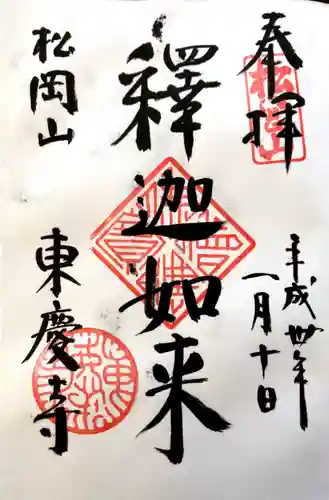 奉拝
松岡山
平成卅年
一月十日
釋迦如来
松岡山
東慶寺